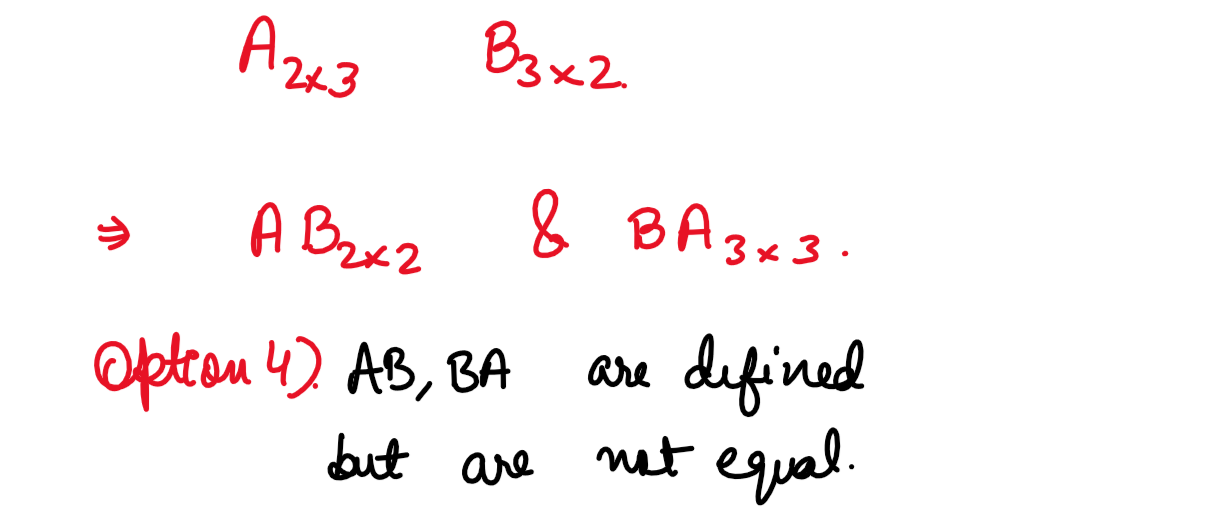 A2×3 B3×2.
⇒ AB2×2 & BA3×3.
Option 4). AB, BA are defined
but are not equal.